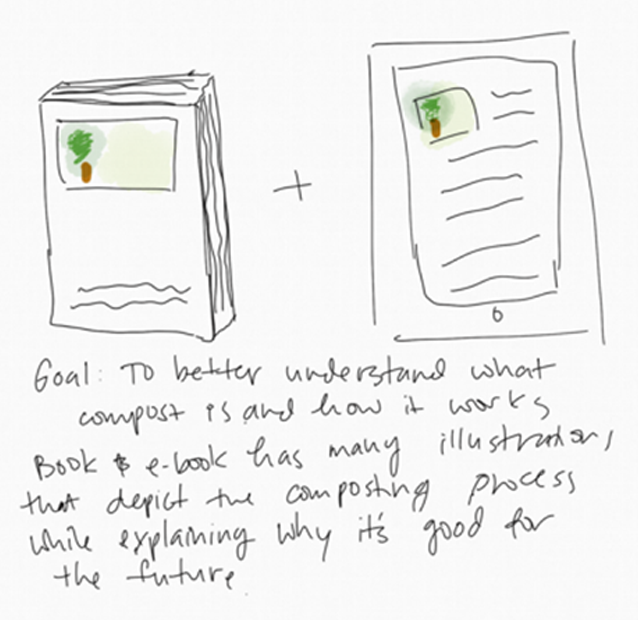 +
Goal: To better understand what
compost is and how it works
Book & e-book has many illustrations
that depict the composting process
while explaining why it's good for
the future.